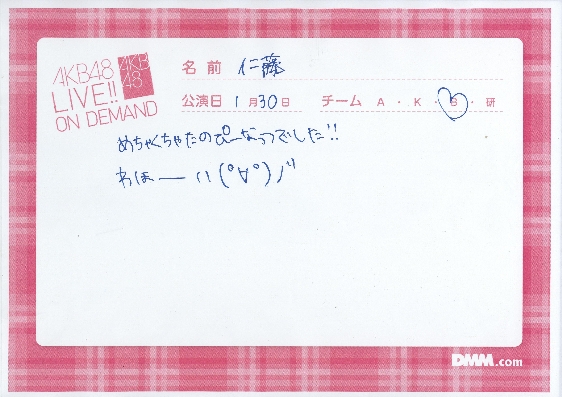 AKB48
LIVE!!
ON DEMAND
AKB
48
名前 仁藤
公演日 1月30日 チーム A・K・B・研
めちゃくちゃたのぴーなっつでした!!
わほーーい(°∀°)ノ"
DMM.com